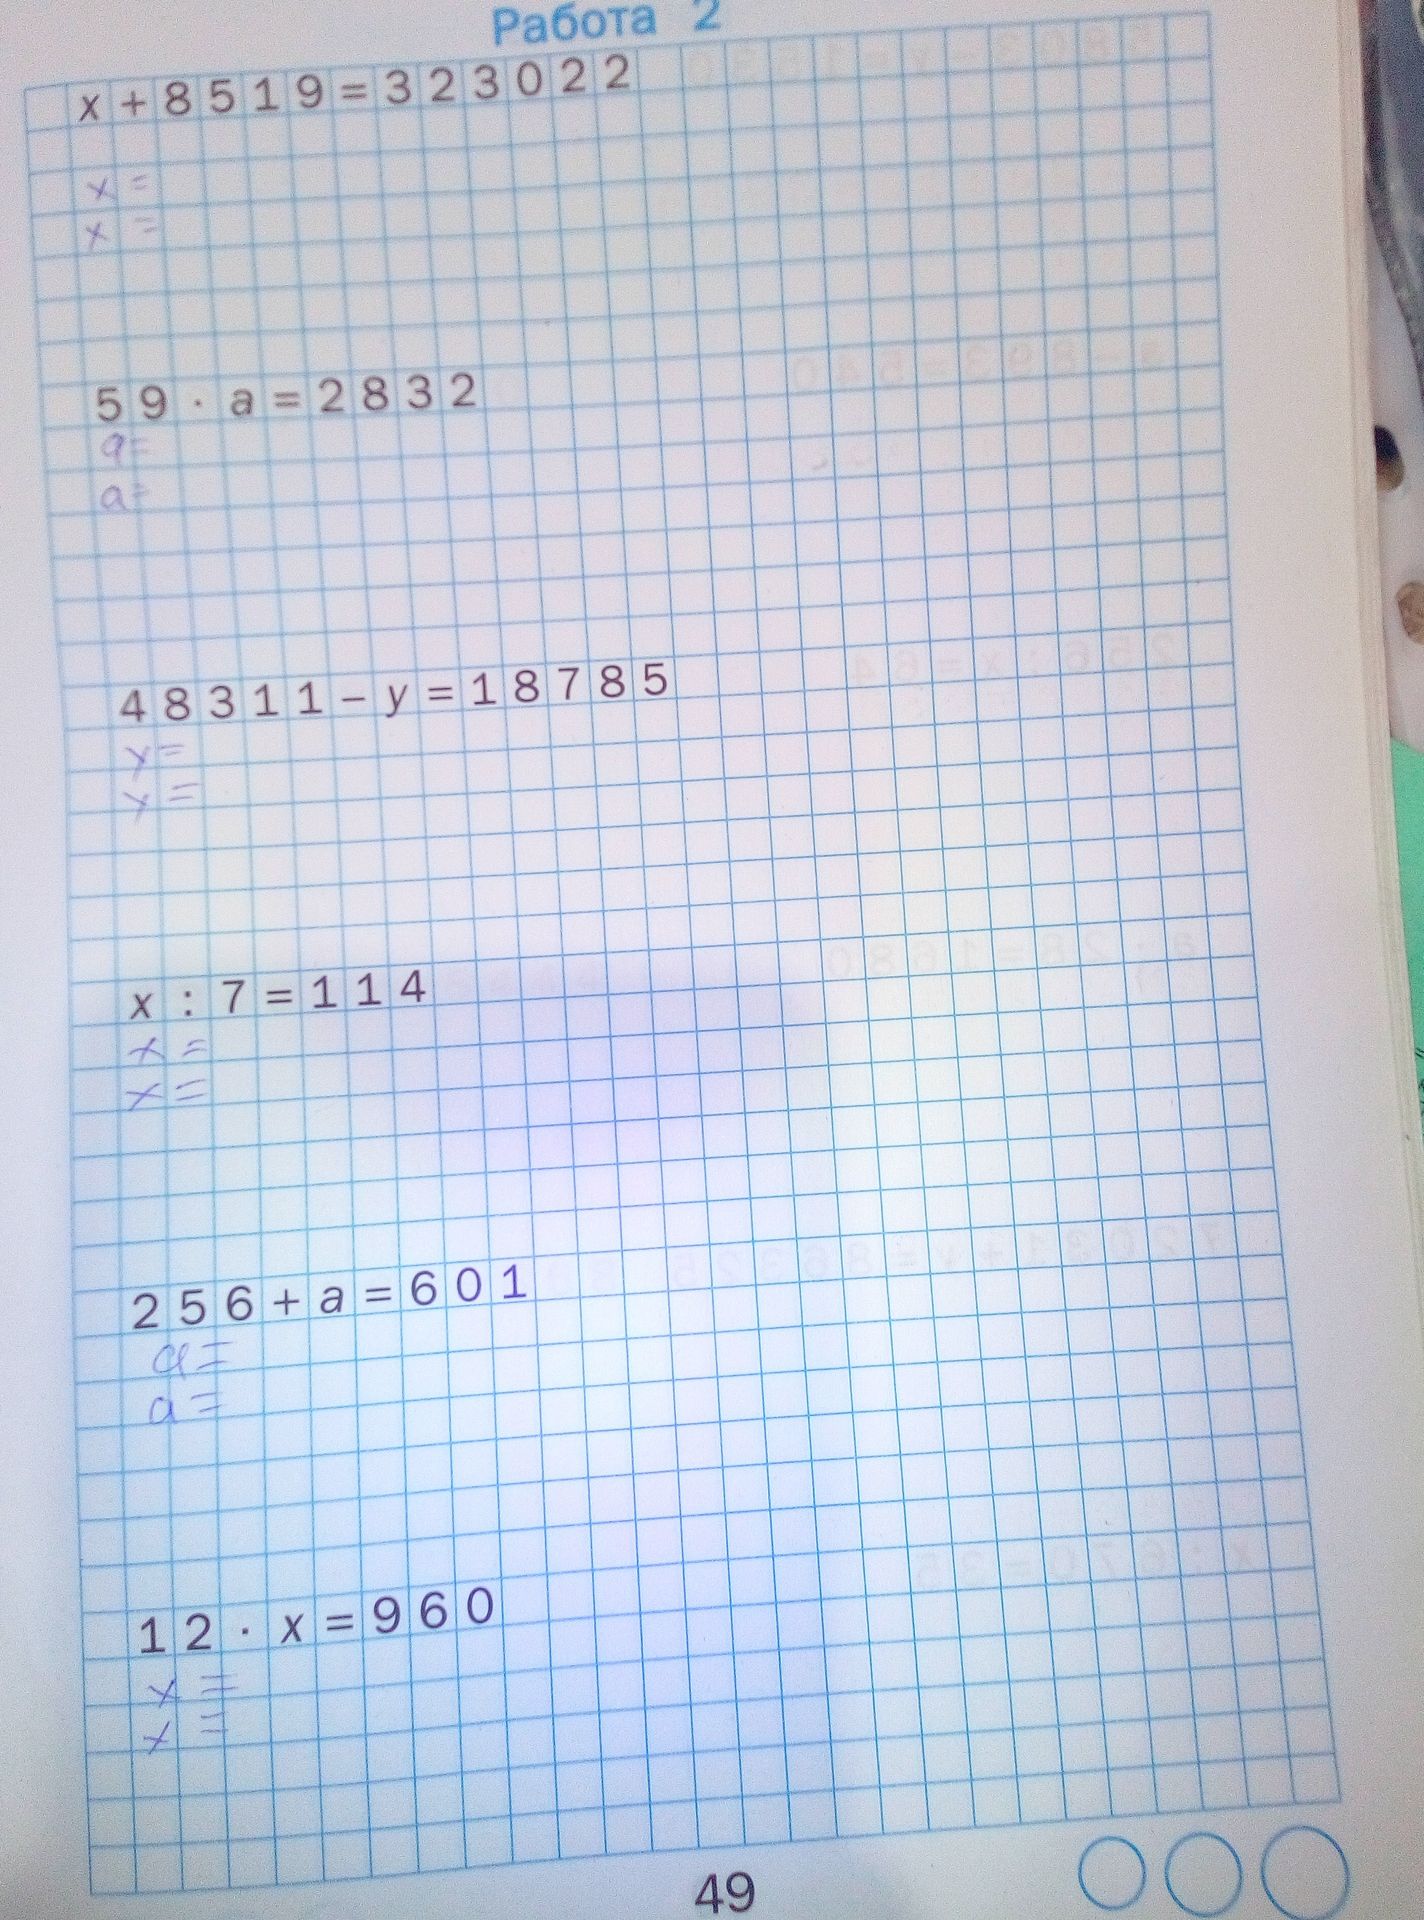 Работа 2
x+8519=323022
x=
x=
59·a=2832
a=
a=
48311-y=18785
y=
y=
x:7=114
x=
x=
256+a=601
a=
a=
12·x=960
x=
x=
49